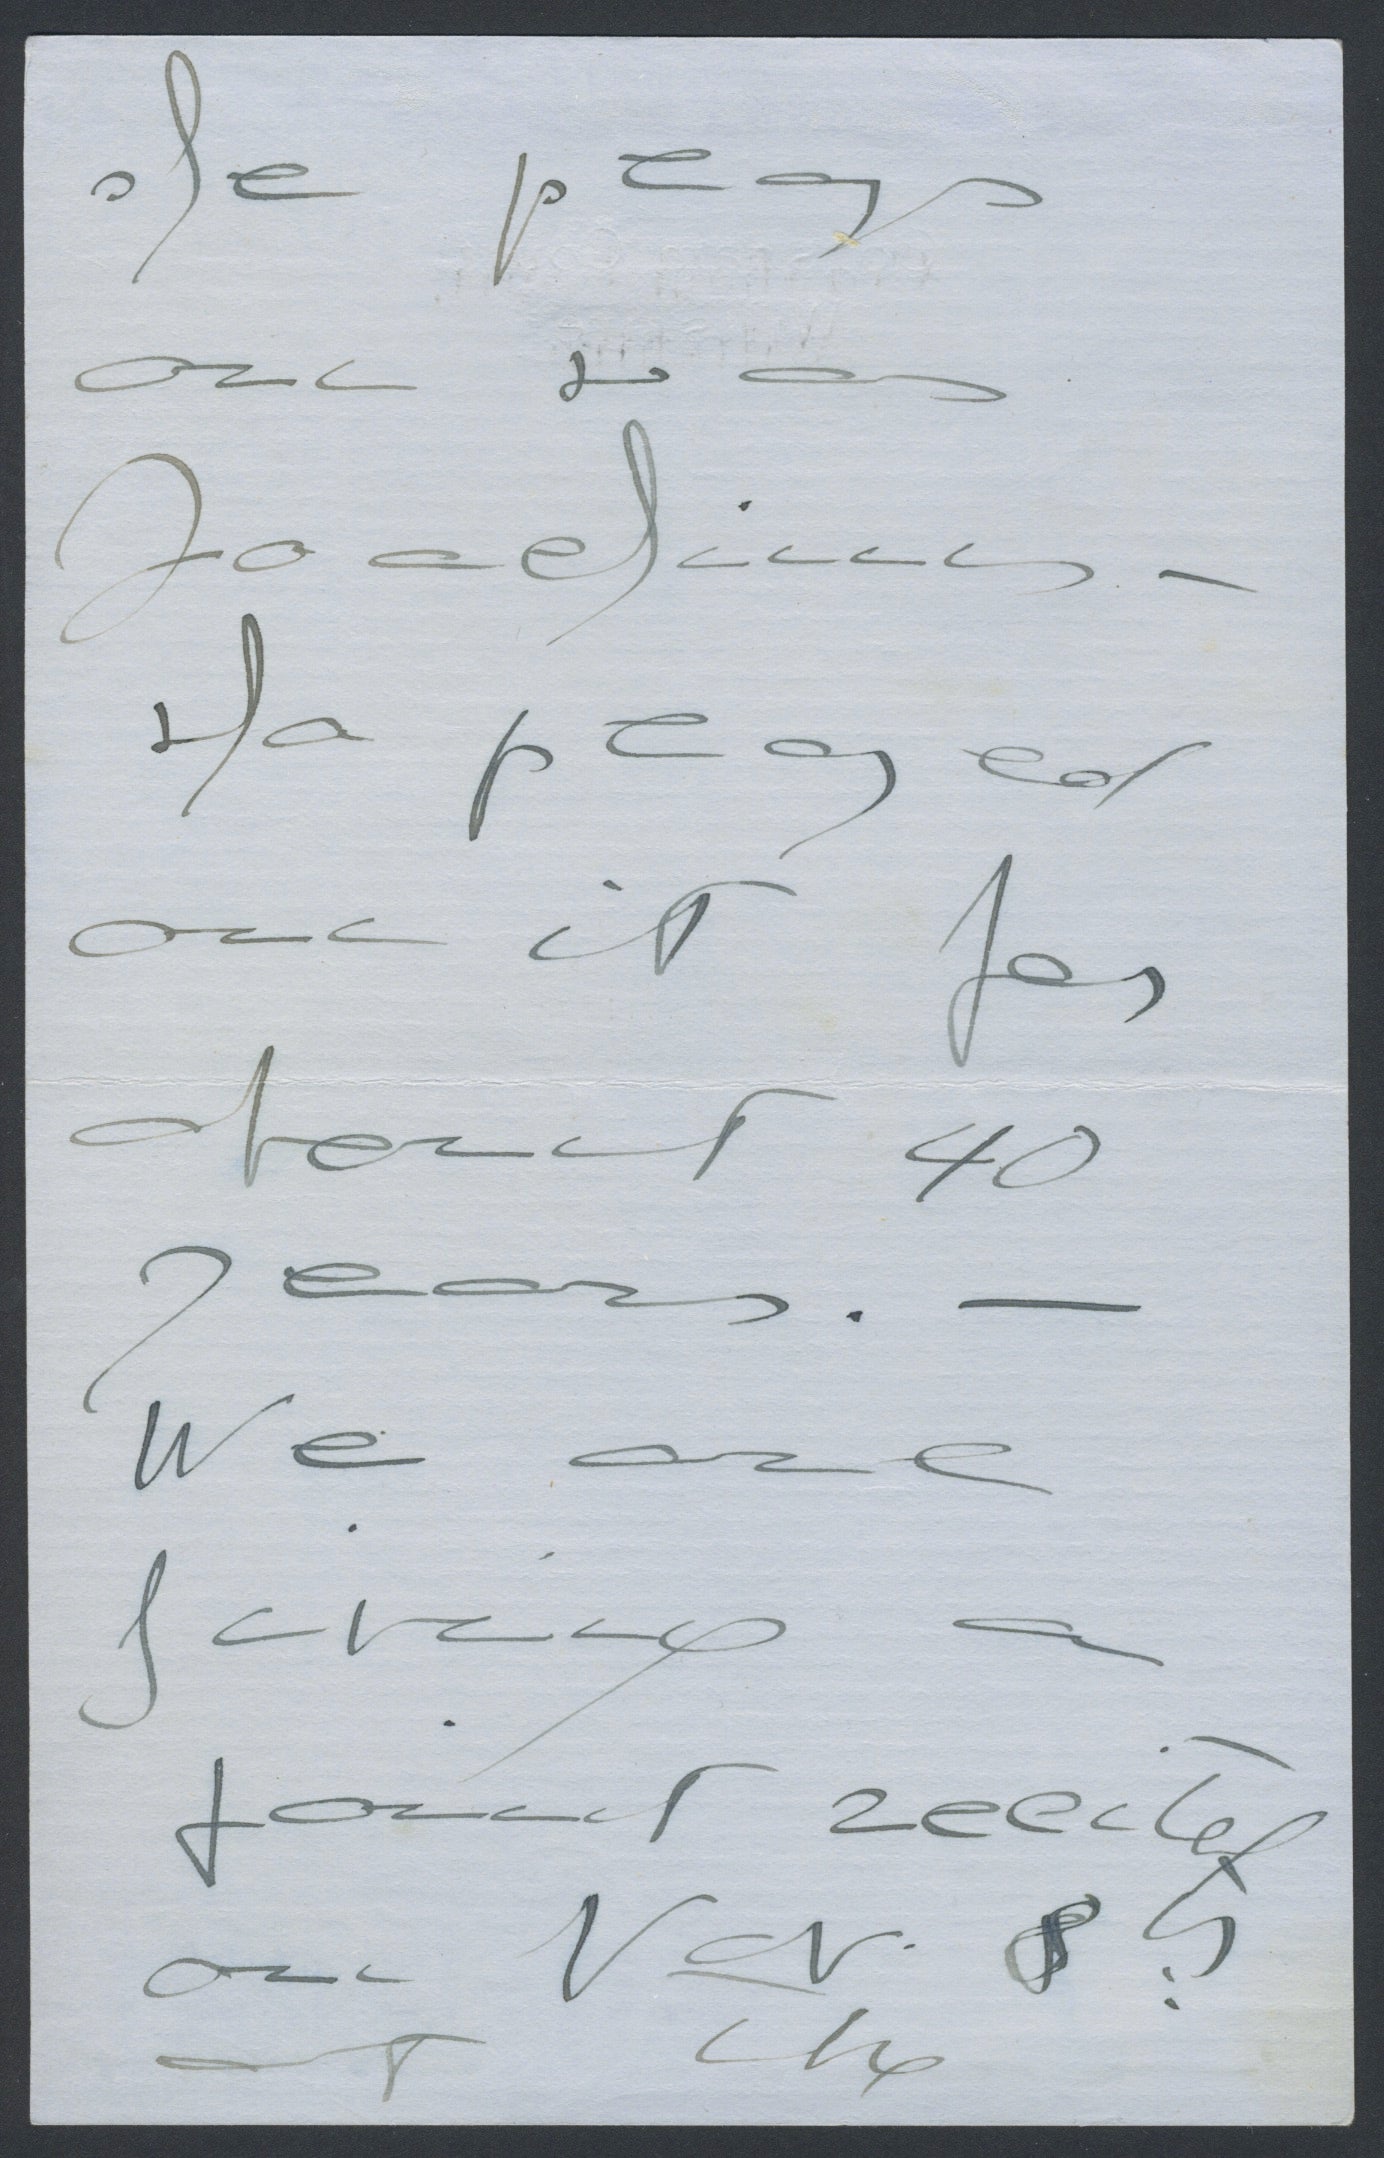 she plays
on was
Joachim's –
He played
on it for
about 40
years. —
We are
giving a
joint recital
on Nov. 8th
at the